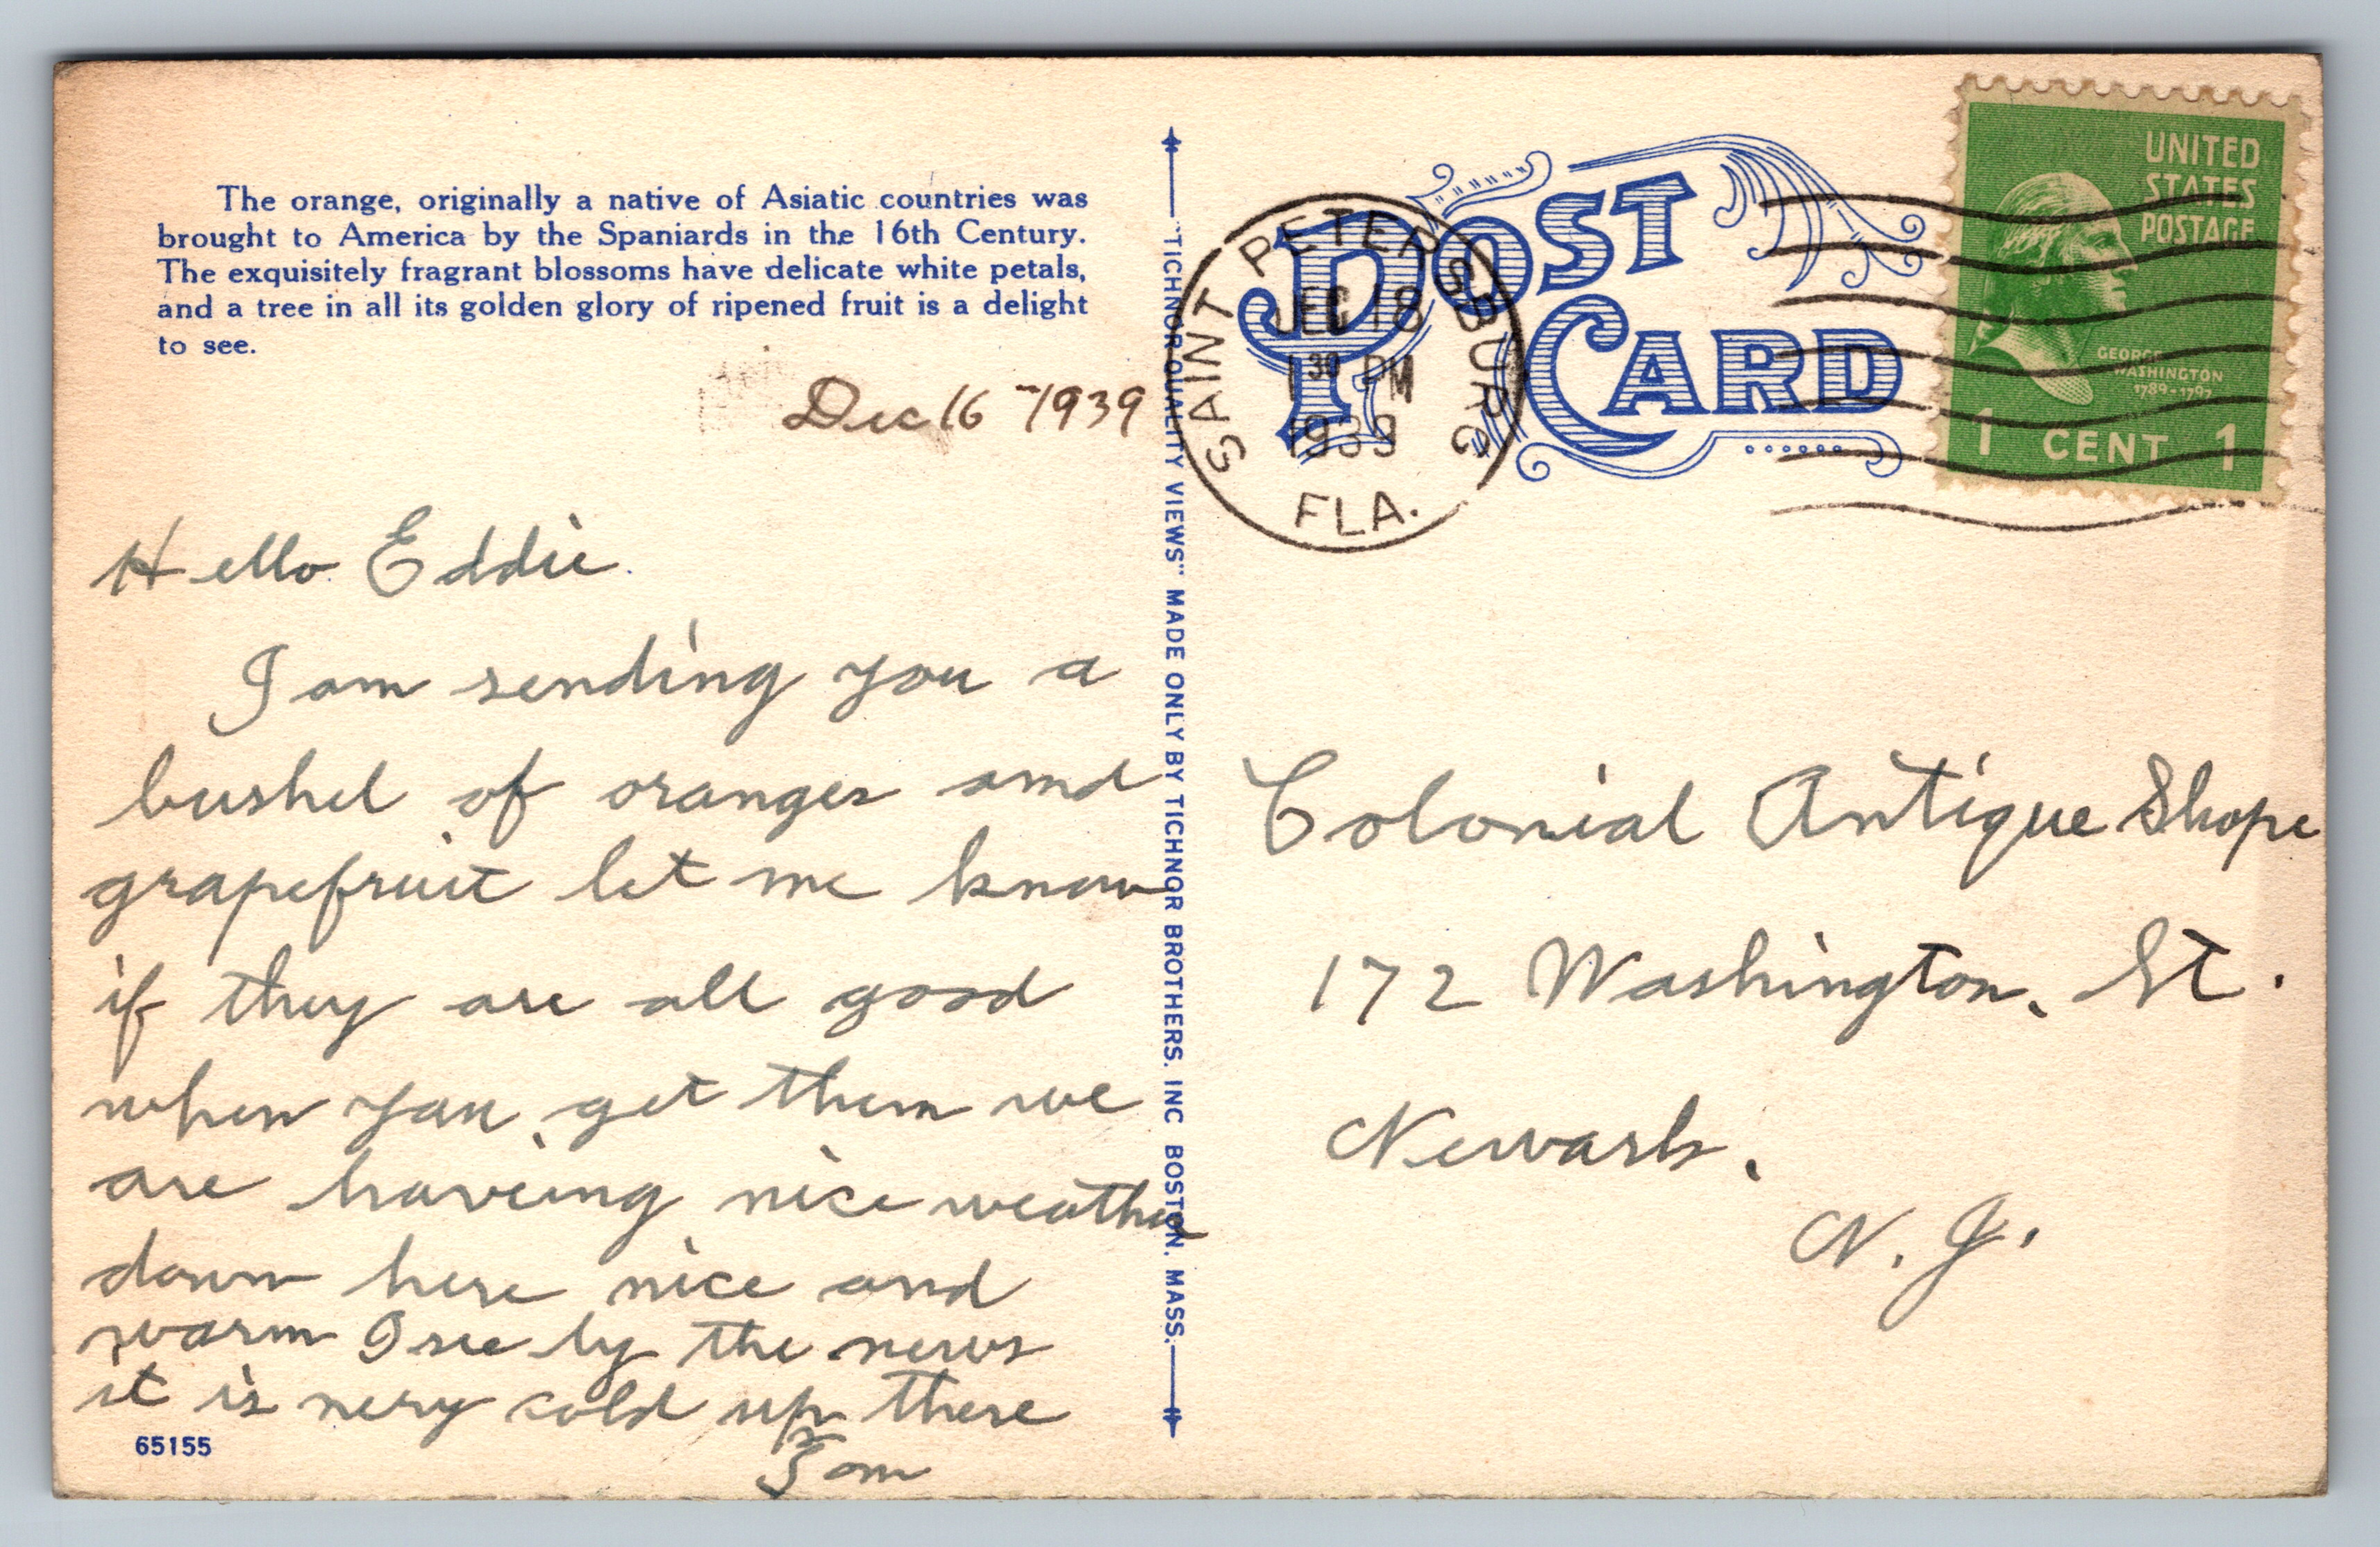 The orange, originally a native of Asiatic countries was
brought to America by the Spaniards in the 16th Century.
The exquisitely fragrant blossoms have delicate white petals,
and a tree in all its golden glory of ripened fruit is a delight
to see.
Dec 16 - 1939
Hello Eddie.
I am sending you a
bushel of oranges and
grapefruit let me know
if they are all good
when you get them we
are haveing nice weather
down here nice and
warm I see by the news
it is very cold up there
Tom
65155
"TICHNOR QUALITY VIEWS" MADE ONLY BY TICHNOR BROTHERS. INC BOSTON. MASS.
POST
CARD
SAINT PETERSBURG
DEC 18
1 30 PM
1939
FLA.
UNITED
STATES
POSTAGE
GEORGE
WASHINGTON
1789-1797
1 CENT 1
Colonial Antique Shope
172 Washington. St.
Newark.
N. J.